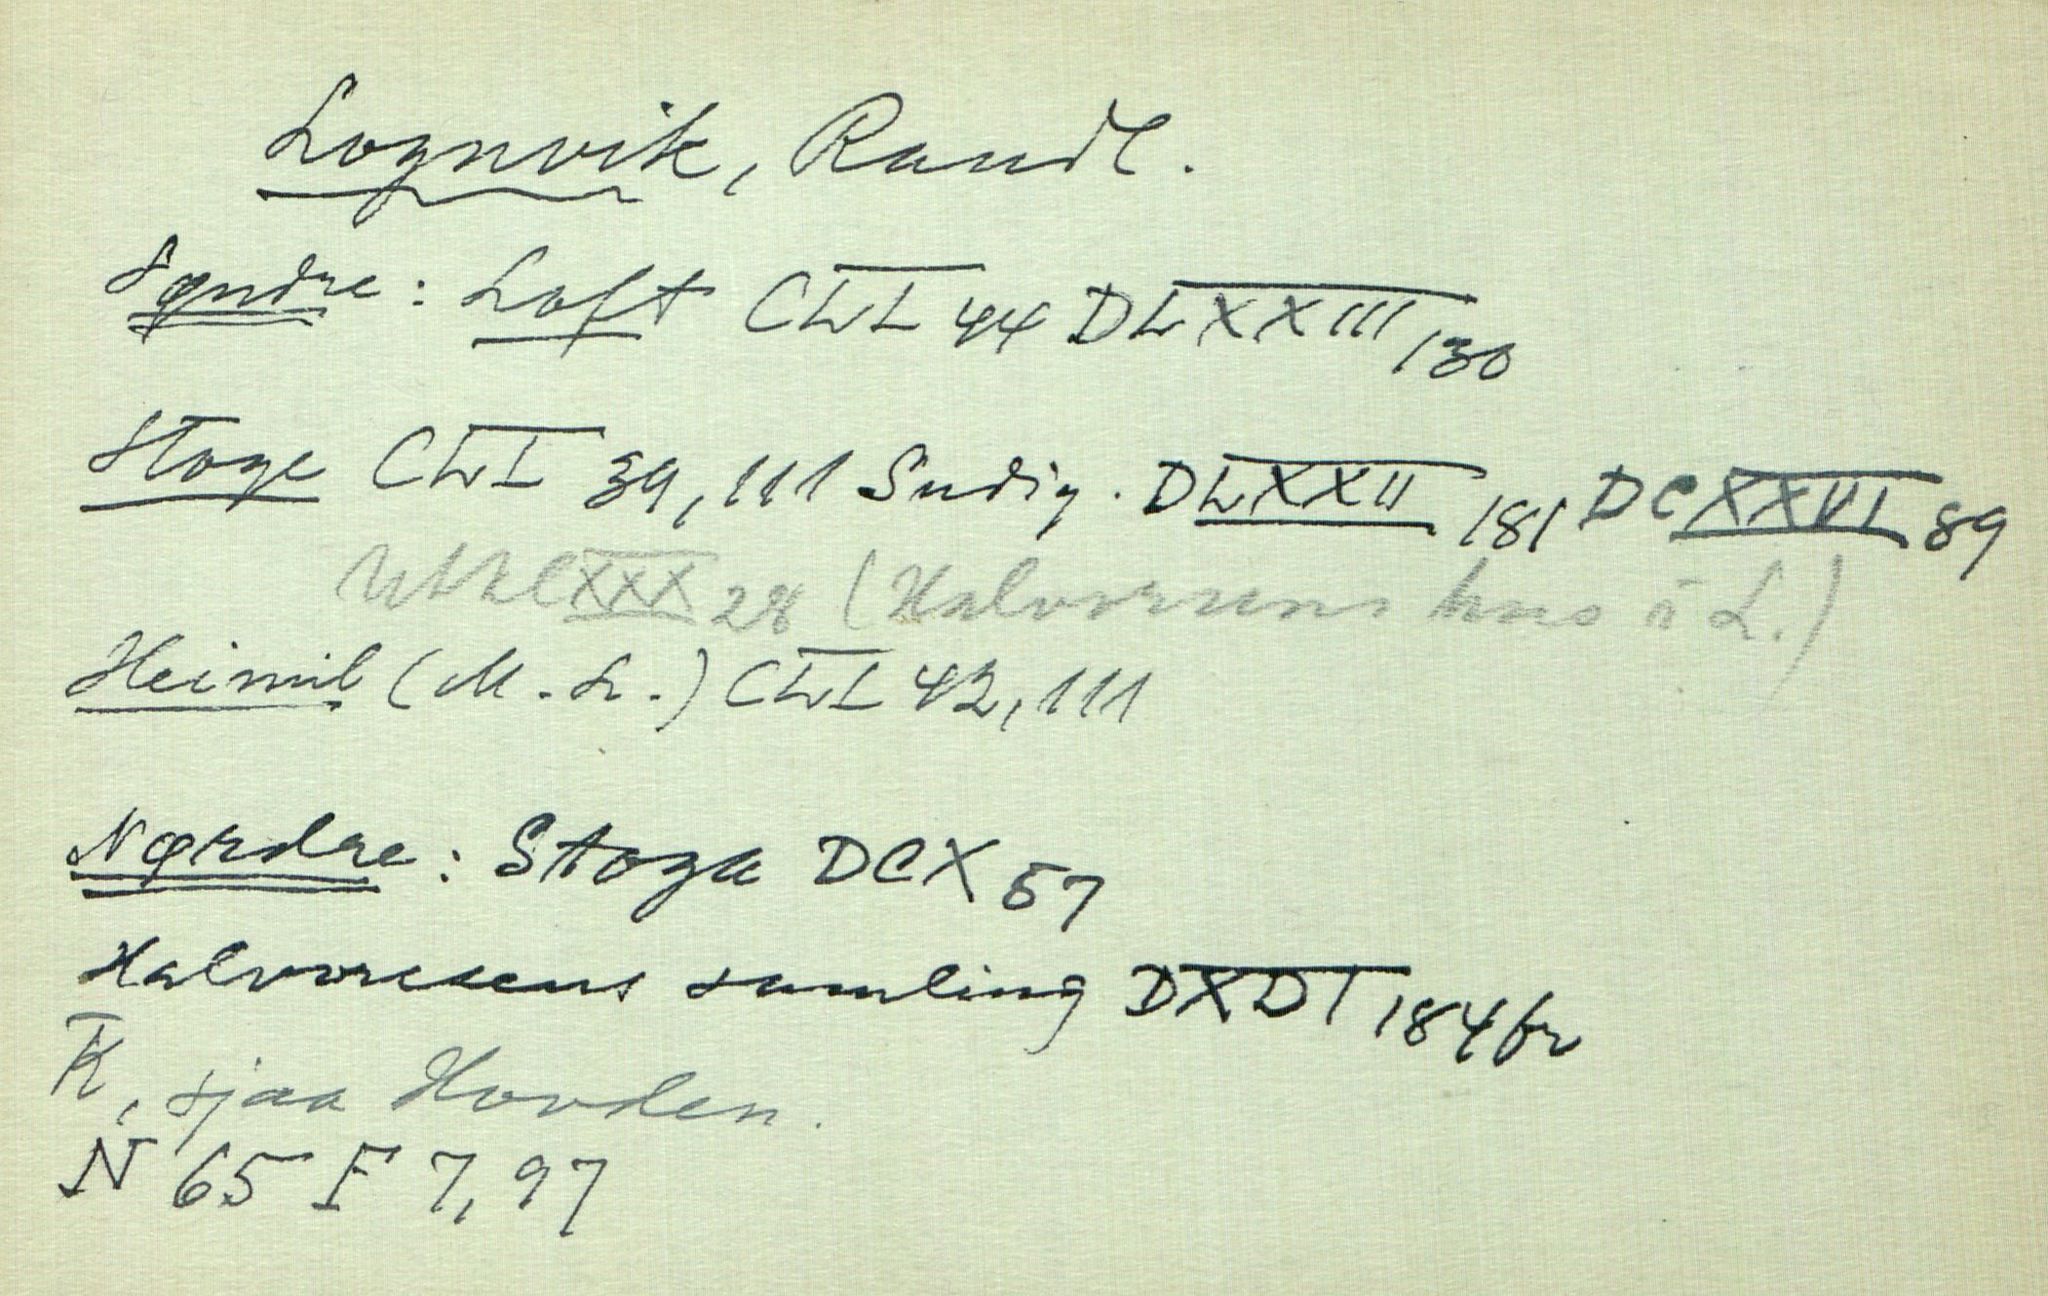 Lognvik, Raudl.
Syndre: Loft CLVI 44 DLXXXIII 130
Stoge CLVI 39, 111 Sudig. DLXXII 181 DCXXVI 89
XXX 28 (Halvorsens hus i L.)
Heimil (M. L.) CLVI 42, 111
Nørdre: Stoga DCX 57
Halvorsens samling 184 fr
K, sjaa Hovden.
N 65 F 7, 97